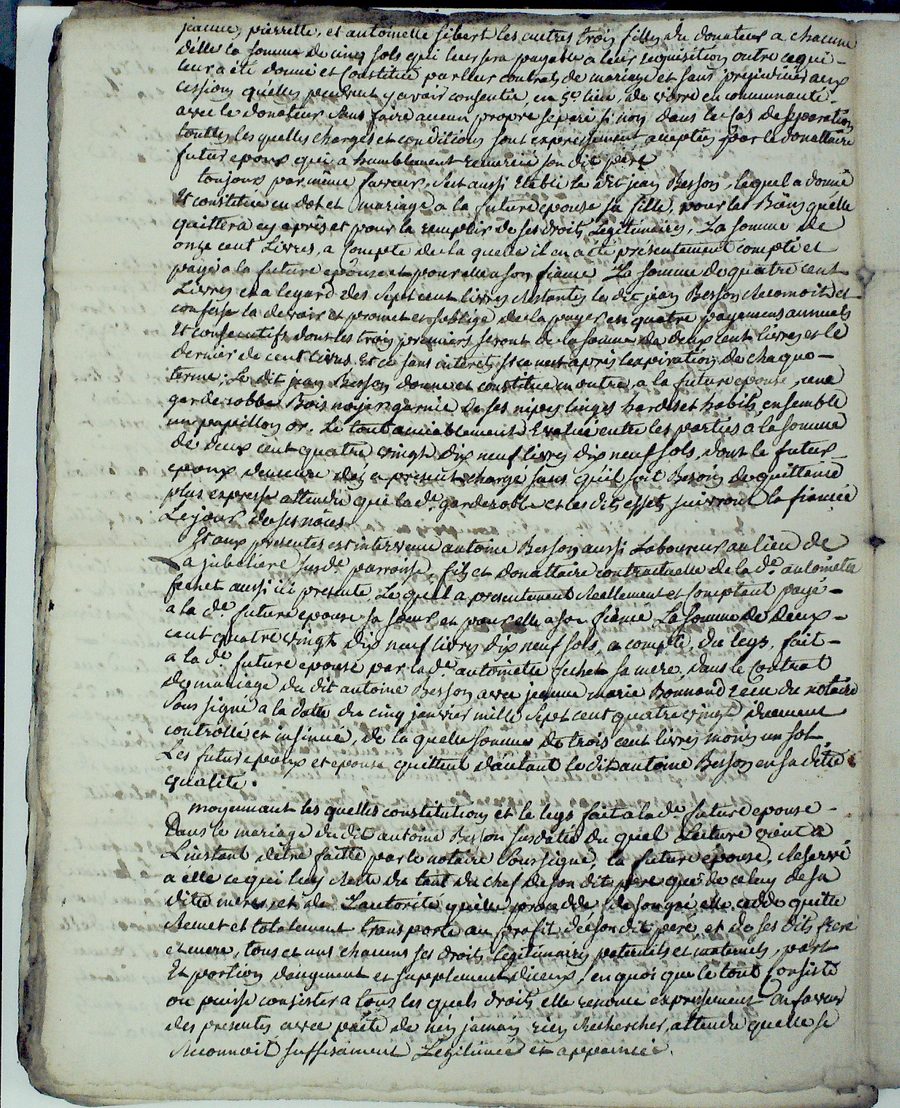 jeanne, pierrette, et antoinette fibert les autres trois filles du donateur a chacune
delle la somme de cinq sols qui leur sera payable a leur requisition outre ce qui
leur a été donné et Constitué par leur contrats de mariage et sans prejudice aux
cessions quelles peuvent y avoir consentie, en 5e lieu, de vivre en communauté
avec le donateur sans faire aucun propre separé si non dans le cas de separation
toutes les quelles charges et conditions sont expressement acceptés par le donattaire
futur epoux qui a humblement remercié son dit pere
toujours par même faveur, s'est aussi etabli le dit jean Besson, lequel a donné
Et constitué en dot et mariage a la future epouse sa fille, pour les Biens quelle
quittera cy après et pour la remplir de ses droits Legitimaires, La somme de
onze cent Livres, a compte de la quelle il en a été présentement compté et
payé a la future epouse et pour elle a son fiancé La somme de quatre cent
Livres et a legard des sept cent livres restantes le dit jean Besson Reconnoit et
confesse la devoir et promet et soblige de la payer en quatre payemens annuels
Et consecutifs dont les trois premiers seront de la somme de deux cent livres et le
dernier de cent livres Et ce sans interets si ce nest après lexpiration de chaque
terme; Le dit jean Besson donne et constitue en outre, a la future epouse, une
garderobbe Bois noyer garnie de ses nipes linges hardes et habits, ensemble
un papillon or. Le tout amiablement Evalué entre les parties a la somme
de deux cent quatre vingt dix neuf livres dix neuf sols, dont le futur
epoux demeure dès a present chargé sans qu'il soit Besoin de quittance
plus expresse attendu que la de. garderobbe et les dits effets suivront la fiancée
Le jour de ses nôces
Et aux presentes est intervenu antoine Besson aussi Laboureur au lieu de
La jubeliere susde. parroisse, fils et donattaire contractuelle de la de. antoinette
fechet aussi ici presente Lequel a presentement reellement et comptant payé
a la de. future epouse sa soeur et pour elle a son fiancé La somme de deux
cent quatre vingt dix neuf livres dix neuf sols, a compte, du legs, fait
a la de. future epouse par la de. antoinette fechet sa mere, dans le Contrat
de mariage du dit antoine Besson avec jeanne marie Bonnand recu du notaire
soussigné a la datte du cinq janvier mille sept cent quatre vingt duement
controllé et insinué, de la quelle somme de trois cent livres moins un sol
Les futurs epoux et epouse quittent dautant le dit antoine Besson en sa dite
qualité.
moyennant les quelles constitutions et le legs fait a la de. future epouse
Dans le mariage du dit antoine Besson susdatté du quel Lecture vient a
Linstant detre faitte par le notaire soussigné, la future epouse, Reservé
a elle ce qui luy reste du tant du chef de son dit pere que de celuy de sa
ditte mere, et de Lautorité quelle procedde de son gré elle cedde quitte
Remet et totalement transporte au profit de son dit pere et de ses dits frere
et mere, tous et uns chacuns ses droits legitimaires paternels et maternels, part
Et portion daugment et supplement diceux, en quoi que le tout consiste
ou puisse consister a tous les quels droits elle renonce expressement en faveur
des presentes avec pacte de n'en jamais rien Rechercher, attendu quelle se
Reconnoit suffisament Legitimée et appanée.